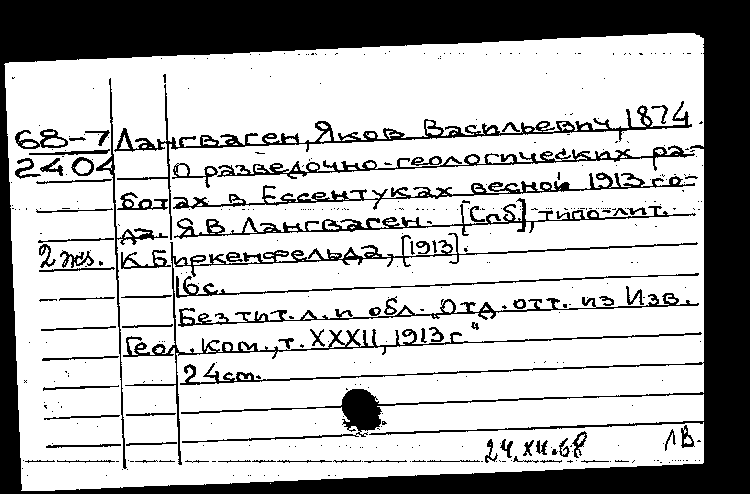 68-7 Лангваген, Яков Васильевич, 1874.
2404 О разведочно-геологических ра-
ботах в Ессентуках весной 1913 го-
да. Я.В. Лангваген. [Спб.], типо-лит.
2 экз. К. Биркенфельда, [1913].
16 с.
Без тит. л. и обл. "Отд. отт. из Изв.
Геол. ком., т. XXXII, 1913 г."
24 cm.
24.XII.68 ЛВ.